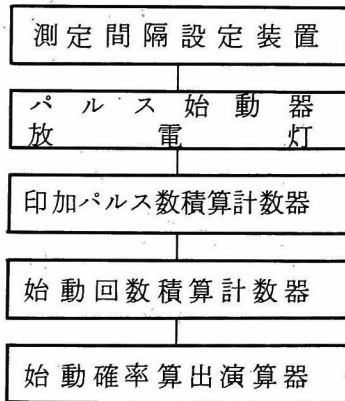 測定間隔設定装置
パルス始動器
放電灯
印加パルス数積算計数器
始動回数積算計数器
始動確率算出演算器